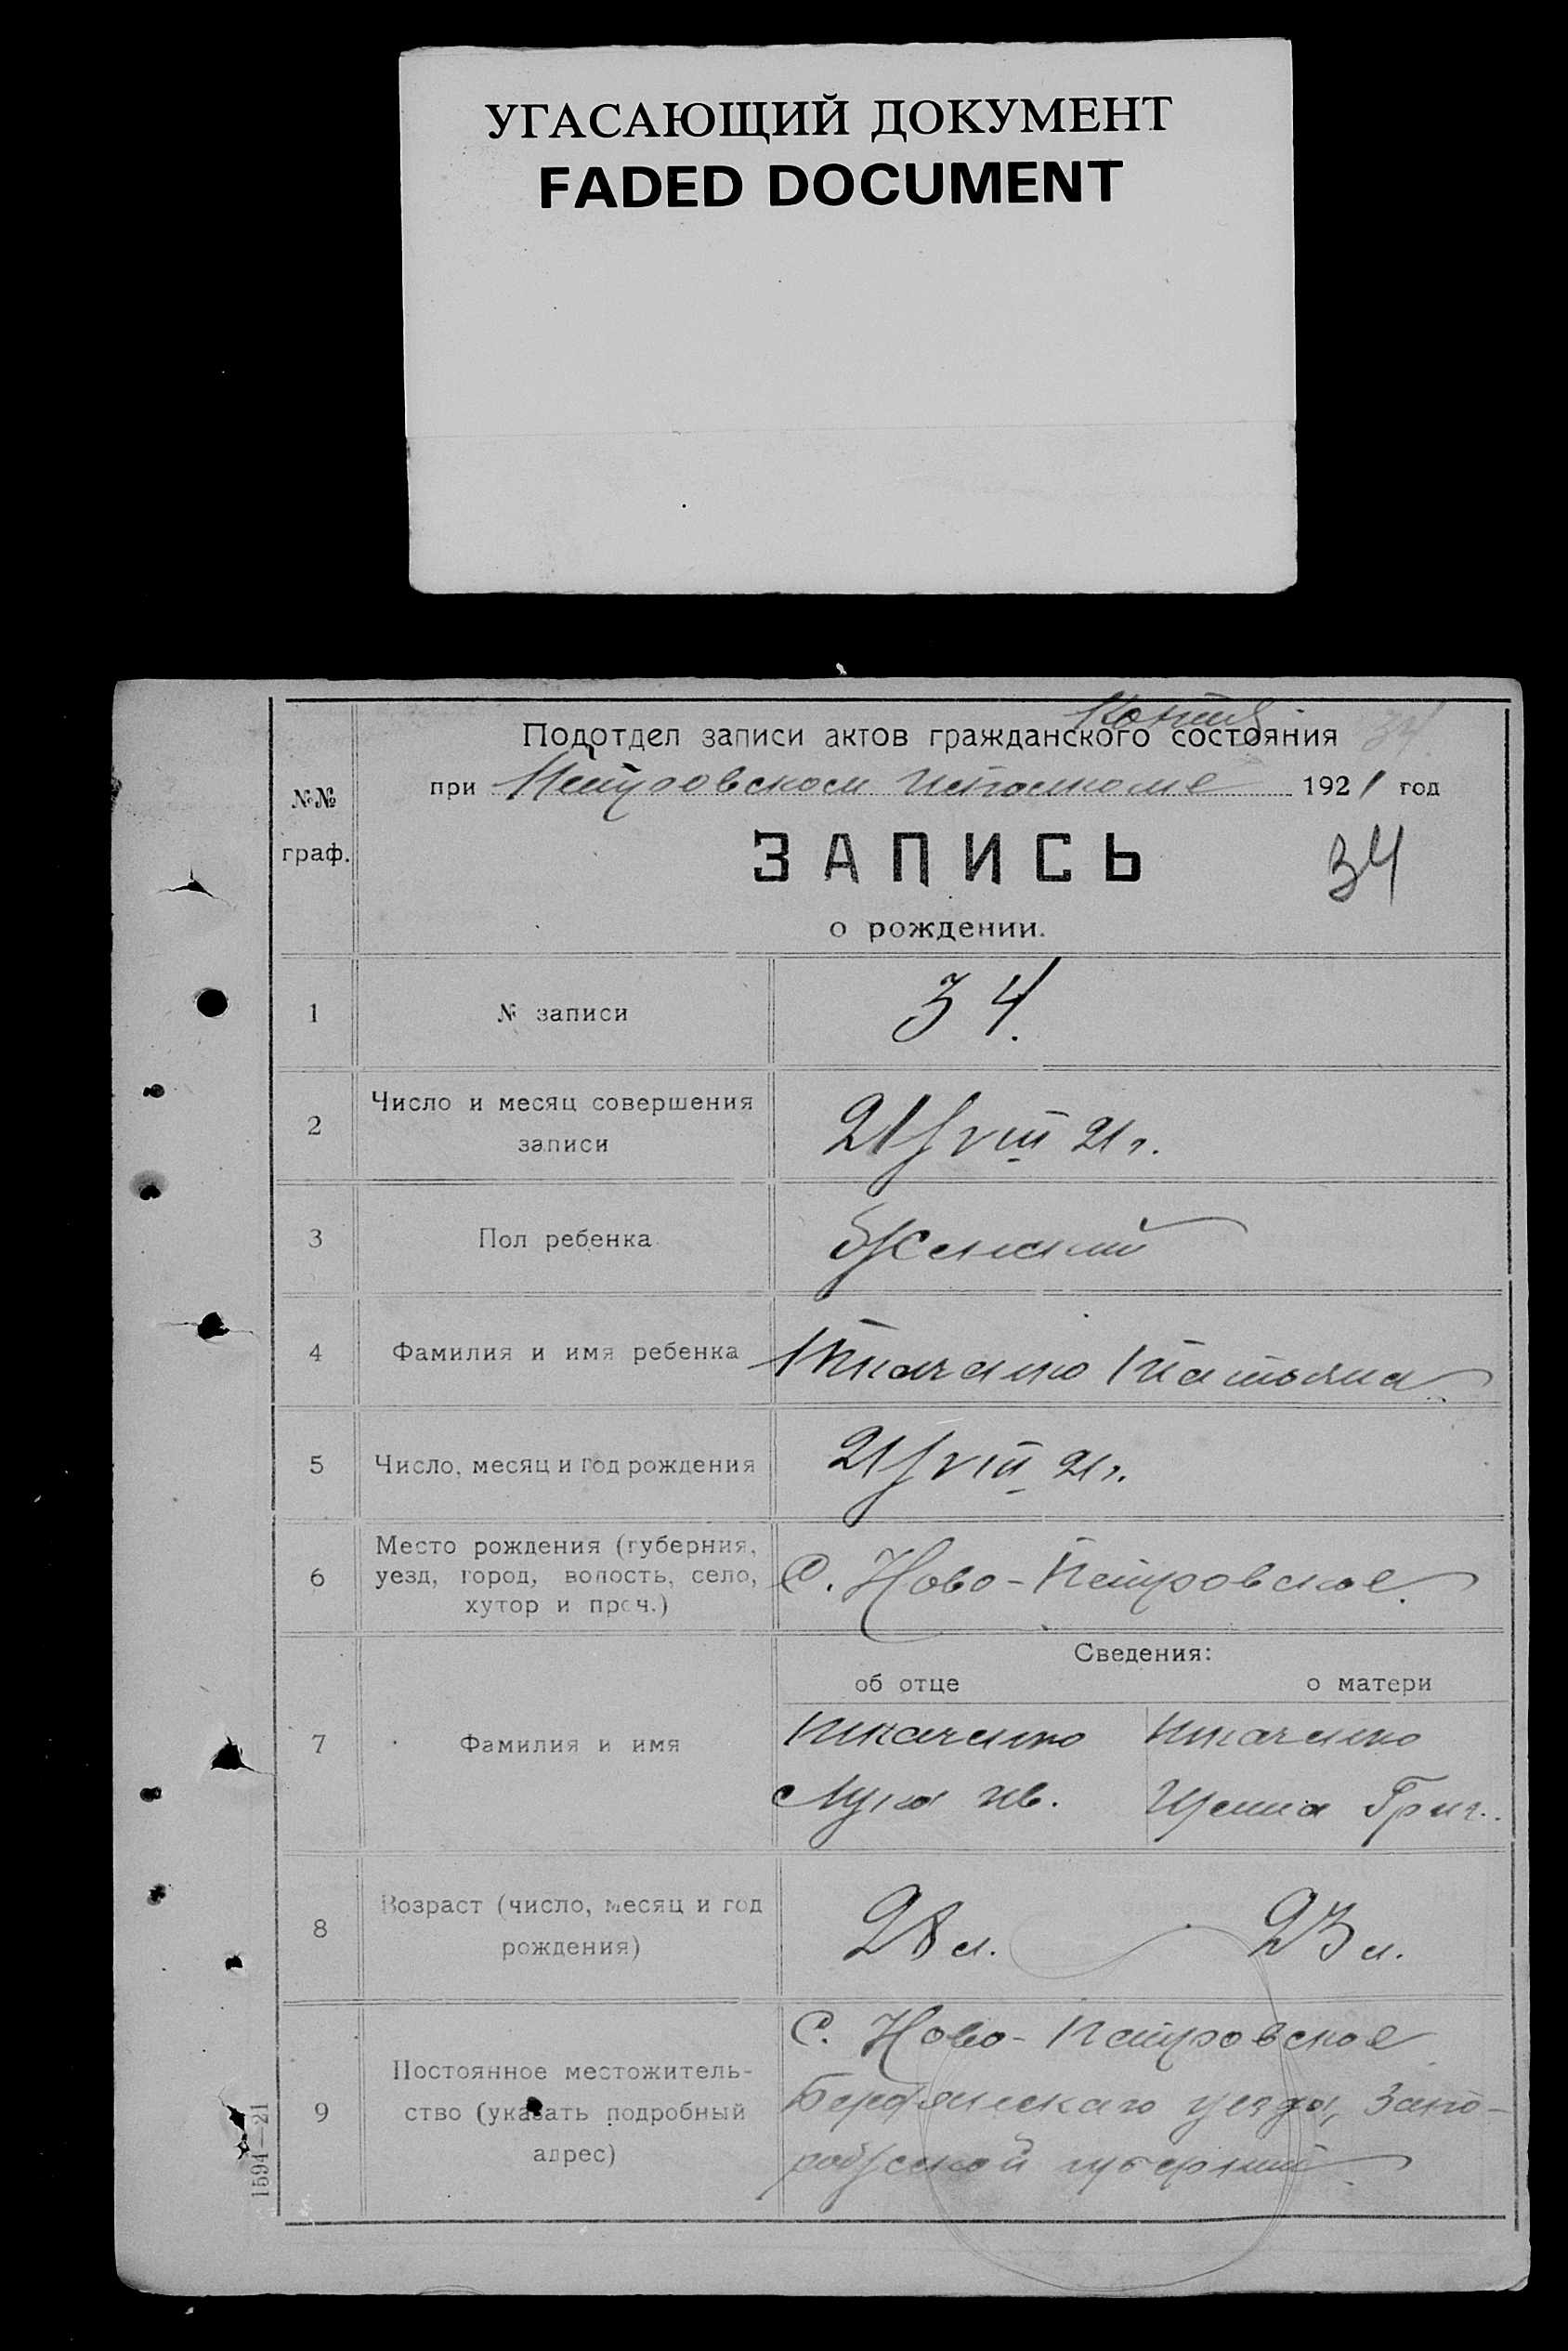 УГАСАЮЩИЙ ДОКУМЕНТ
FADED DOCUMENT
Копия
Подотдел записи актов гражданского состояния 34
при Петровском исполкоме 1921 год
№№
граф.
ЗАПИСЬ
34
о рождении.
1 № записи 34.
2 Число и месяц совершения
записи
21/VIII 21 г.
3 Пол ребенка Женский
4 Фамилия и имя ребенка Ткаченко Татьяна
5 Число, месяц и год рождения 21/VIII 21 г.
6 Место рождения (губерния,
уезд, город, волость, село,
хутор и проч.)
С. Ново-Петровское
Сведения:
об отце о матери
7 Фамилия и имя
Ткаченко Ткаченко
Лука Ив. Ирина Григ.
8 Возраст (число, месяц и год
рождения)
28 л. 23 л.
9 Постоянное местожитель-
ство (указать подробный
адрес)
С. Ново-Петровское
Бердянскаго уезда, Запо-
рожской губернии
1594—21